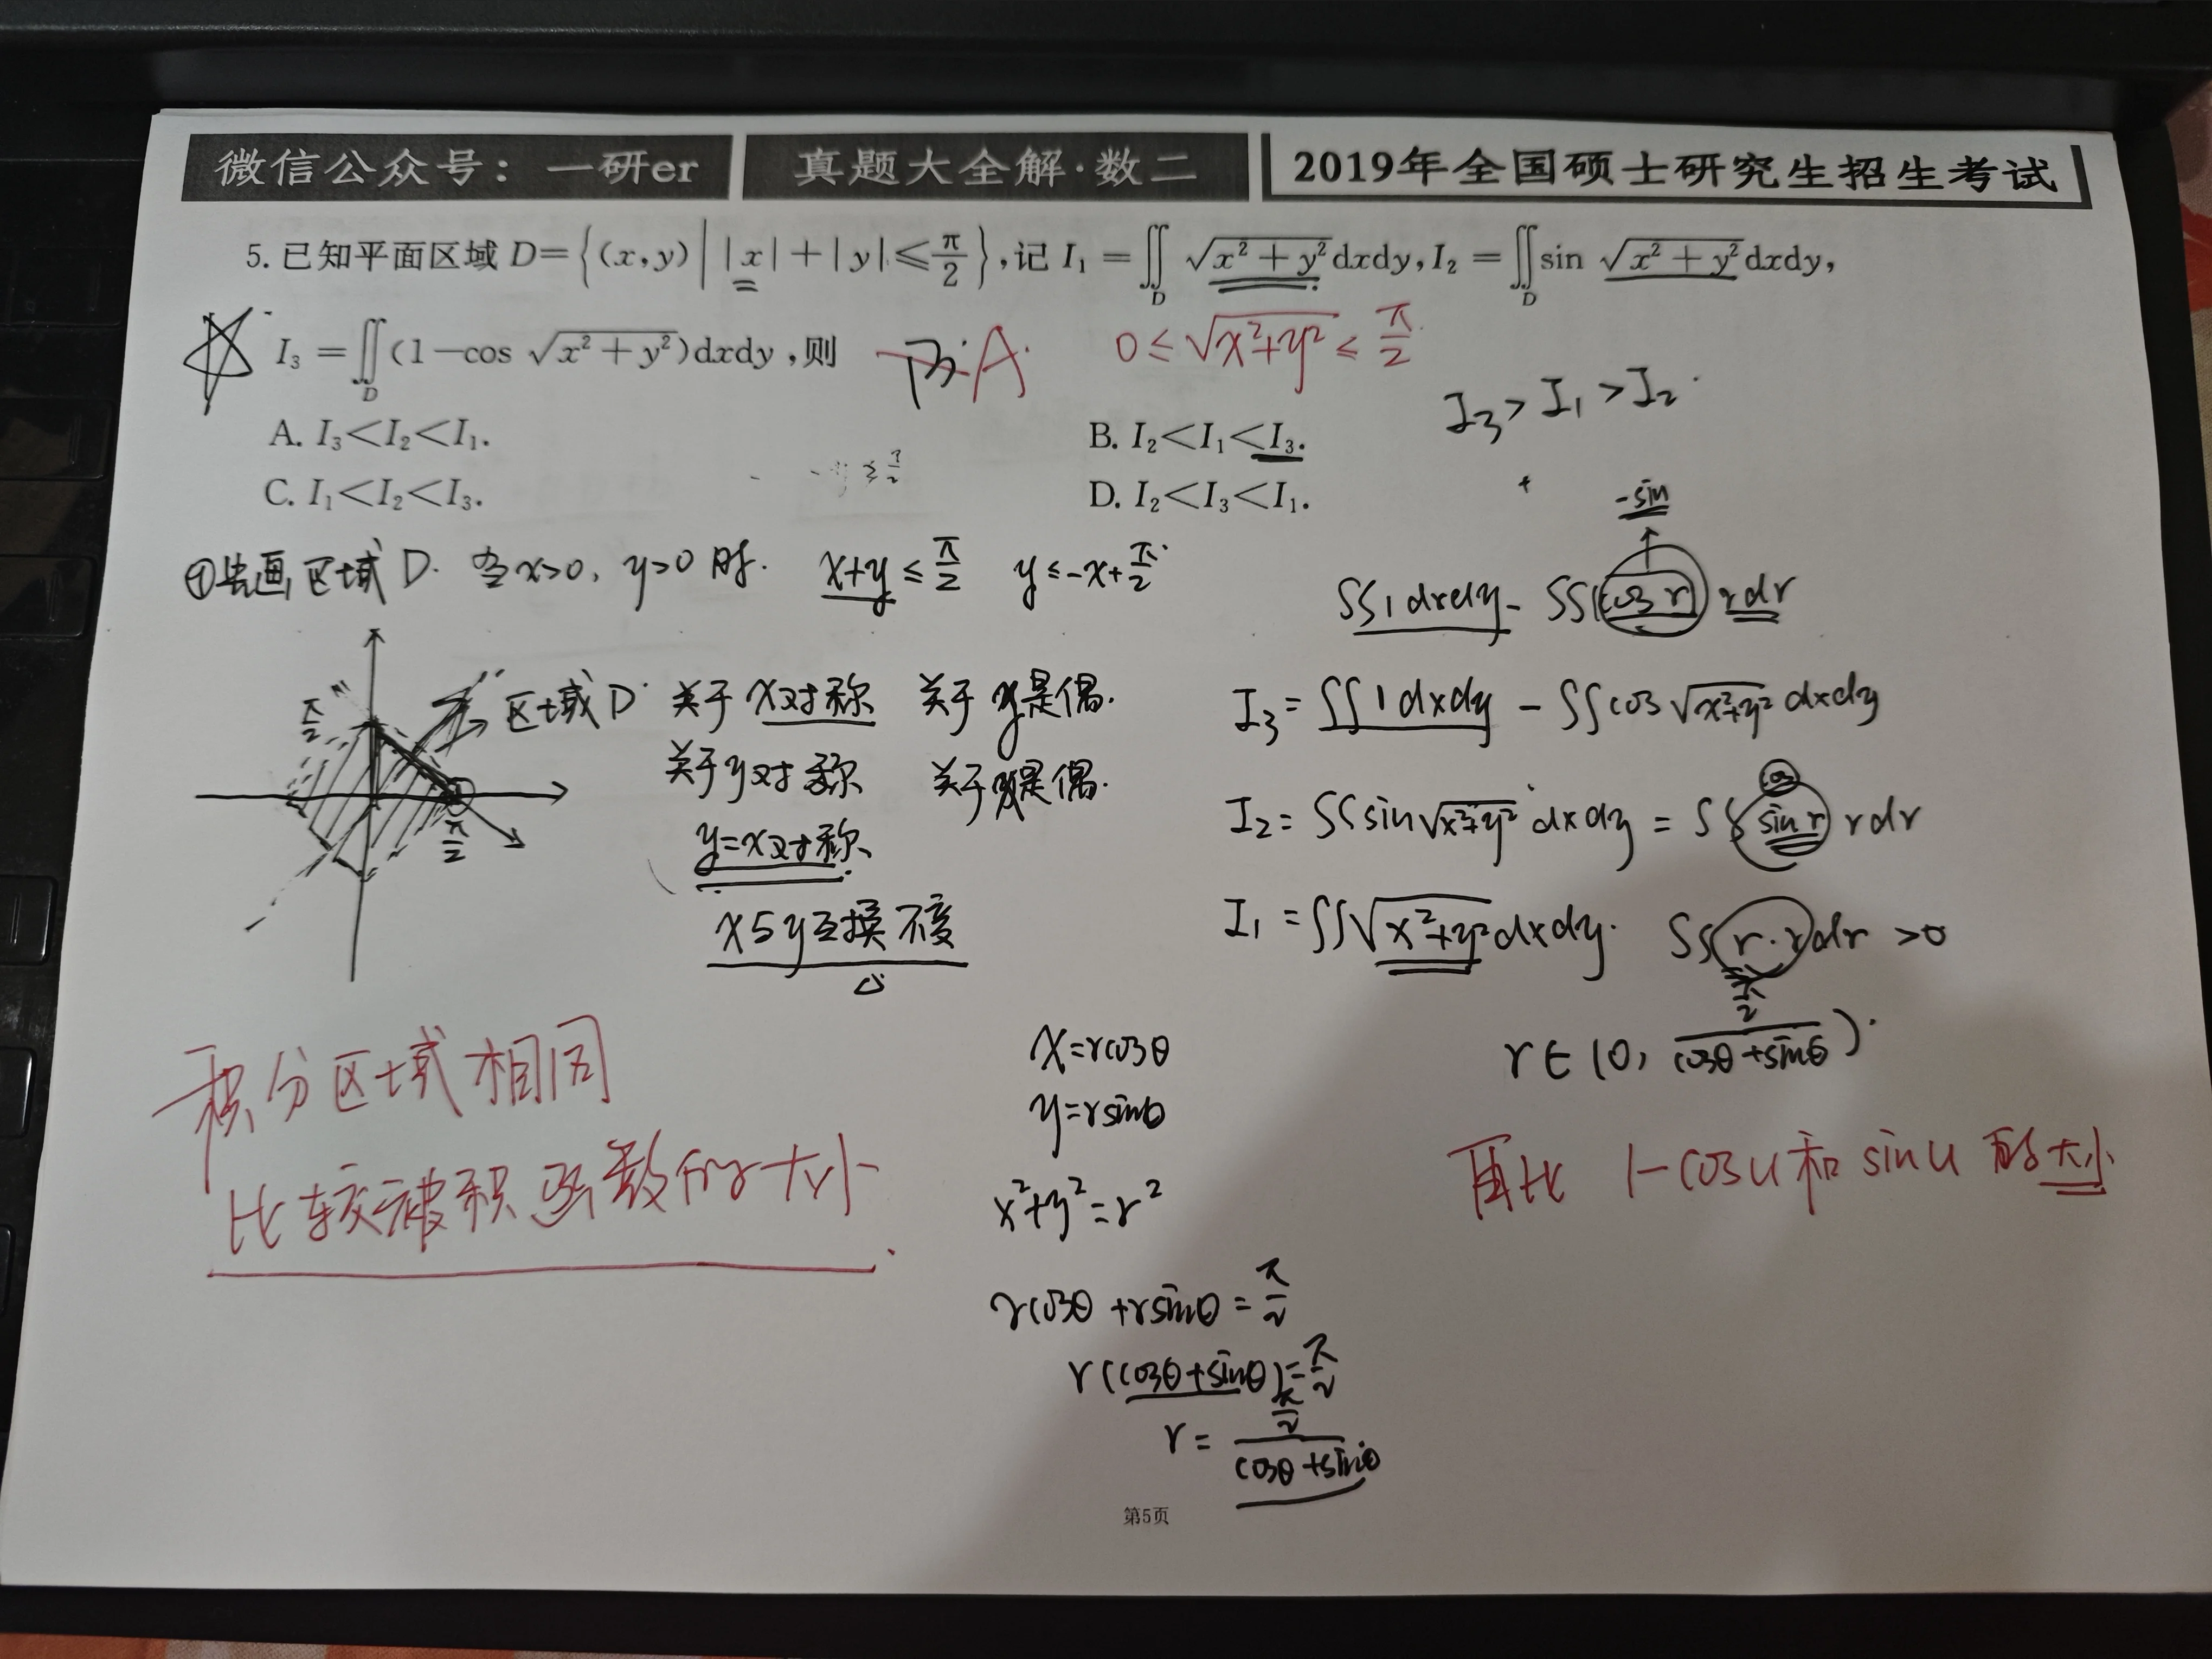 微信公众号：一研er 真题大全解·数二 2019年全国硕士研究生招生考试
5. 已知平面区域 D={(x,y)||x|+|y|≤π/2},记 I₁=∬_D √(x²+y²)dxdy, I₂=∬_D sin √(x²+y²)dxdy,
I₃=∬_D(1-cos √(x²+y²))dxdy,则 A. 0≤√(x²+y²)≤π/2
I₃>I₁>I₂
A. I₃<I₂<I₁. B. I₂<I₁<I₃.
C. I₁<I₂<I₃. D. I₂<I₃<I₁.
①先画区域D. 当x>0, y>0时. x+y≤π/2 y≤-x+π/2
-sin
∬1dxdy-∬(cos r) rdr
π/2
区域D 关于x对称 关于y是偶.
关于y对称 关于x是偶.
π/2
y=x对称
x与y互换不变
I₃=∬1dxdy-∬cos√(x²+y²)dxdy
cos
I₂=∬sin√(x²+y²)dxdy=∬sin r rdr
I₁=∬√(x²+y²)dxdy. ∬r·rdr>0
r∈(0, (π/2)/(cosθ+sinθ)).
积分区域相同
比较被积函数的大小.
x=rcosθ
y=rsinθ
x²+y²=r²
rcosθ+rsinθ=π/2
r(cosθ+sinθ)=π/2
r=(π/2)/(cosθ+sinθ)
再比 1-cosu和sinu的大小
第5页